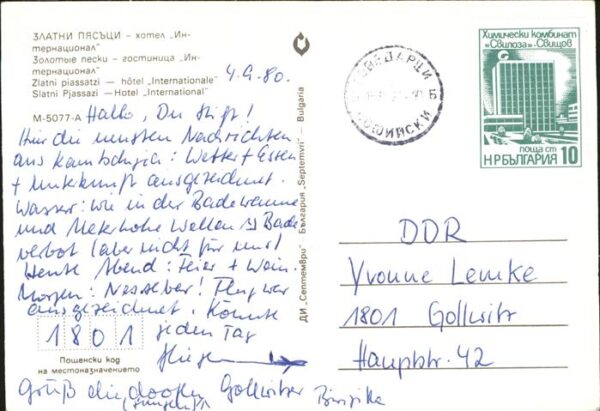 ЗЛАТНИ ПЯСЪЦИ – хотел „Ин-
тернационал"
Золотые пески – гостиница „Ин-
тернационал"
Zlatni piassatzi — hôtel „Internationale"
Slatni Pjassazi — Hotel „International"
M-5077-A
4.9.80.
Hallo, Du
Hier die neusten Nachrichten
aus Kamtschija: Wetter + Essen
+ Unterkunft ausgezeichnet.
Wasser: wie in der Badewanne
und Meterhohe Wellen Bade
verbot (aber nicht für uns)
Heute Abend: Feier + Wein.
Morgen: Nessebar! Flug war
ausgezeichnet. Könnte
jeden Tag
fliegen
1801
Пощенски код
на местоназначението
Grüß die Gollwitzer
ДИ „Септември" България „Septemvri" — Bulgaria
Химически комбинат
„Свилоза"-Свищов
поща ст
НР БЪЛГАРИЯ 10
DDR
Yvonne Lemke
1801 Gollwitz
Hauptstr. 42